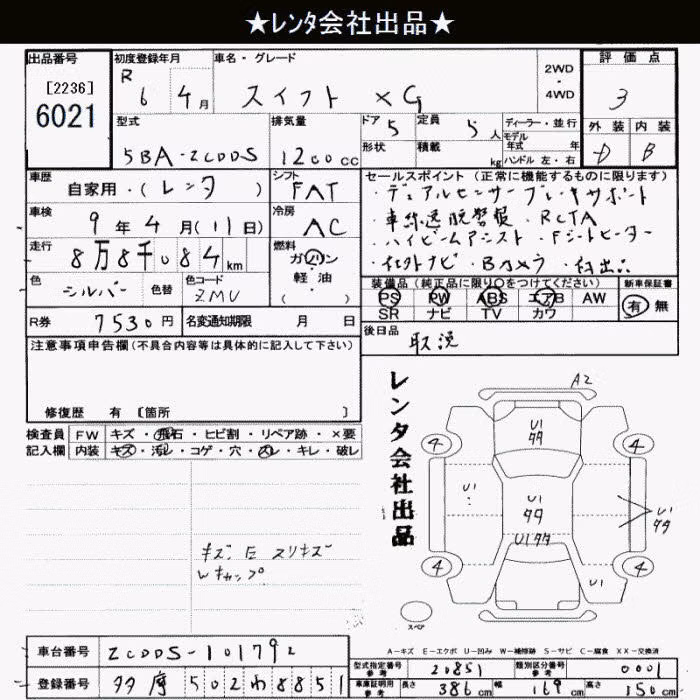 ★レンタ会社出品★
出品番号
[2236]
6021
初度登録年月
R 6年 4月
車名・グレード
スイフト XG
2WD・4WD
評価点
3
型式
5BA-ZCDDS
排気量
1200cc
ドア 5
形状
定員 5人
積載 kg
ディーラー・並行
モデル年式 年
ハンドル 左・右
外装 内装
D B
車歴
自家用・(レンタ)
シフト
FAT
車検
9年 4月(11日)
冷房
AC
走行
8万8千084km
燃料
ガソリン
軽油
色
シルバー
色替
色コード
ZMU
R券 7530円
名変通知期限 月 日
セールスポイント (正常に機能するものに限ります)
・デュアルセンサーブレーキサポート
・車線逸脱警報 ・RCTA
・ハイビームアシスト ・Fシートヒーター
・社外ナビ ・Bカメラ
装備品(純正品に限り○をつけてください)
PS PW ABS エアB AW
SR ナビ TV カワ
新車保証書
有 無
後日品
取説
注意事項申告欄(不具合内容等は具体的に記入して下さい)
修復歴 有 [箇所 ]
検査員 FW キズ・飛石・ヒビ割・リペア跡・×要
記入欄 内装 キズ・汚レ・コゲ・穴・スレ・キレ・破レ
キズ E スリキズ
Wキャップ
レンタ会社出品
A2
U1
タタ
4
4
U1
U1
タタ
U1
タタ
U1タタ
4
4
U1
スペア
A-キズ E-エクボ U-凹み W-補修跡 S-サビ C-腐食 XX-交換済
車台番号 ZCDDS-101792
登録番号 多摩502わ8851
型式指定番号 参考 20851
類別区分番号 参考 0001
車庫証明用 参考 長さ 386cm 幅 169cm 高さ 150cm